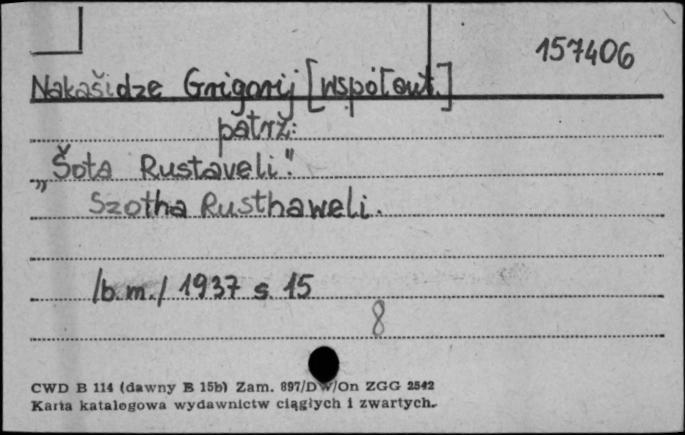 157406
Nakašidze Grigorij [współaut.]
patrz:
„Šota Rustaveli".
Szotha Rusthaweli.
/b.m./ 1937 s. 15
8
CWD B 114 (dawny B 15b) Zam. 897/DW/On ZGG 2542
Karta katalogowa wydawnictw ciągłych i zwartych.